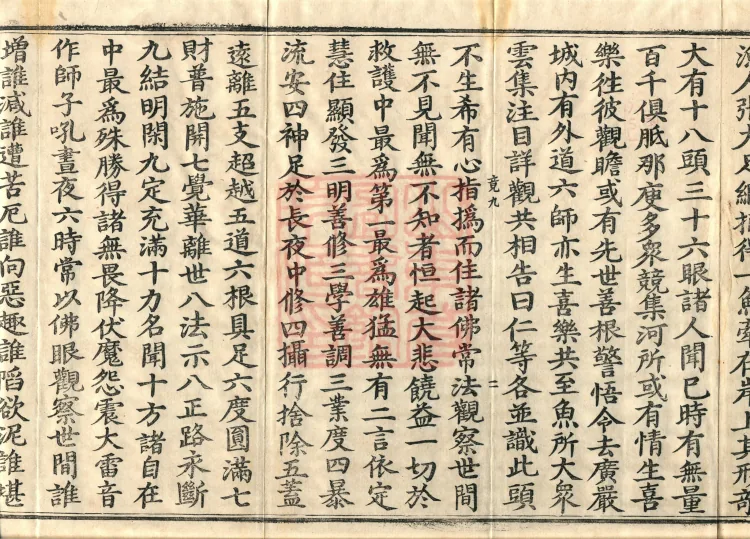 人張大足網捕得一魚牽在岸上其形
大有十八頭三十六眼諸人聞已時有無量
百千俱胝那庾多衆競集河所或有情生喜
樂徃彼觀瞻或有先世善根警悟令去廣嚴
城内有外道六師亦生喜樂共至魚所大衆
雲集注目詳觀共相告曰仁等各並識此頭
竟九 二
不生希有心指撝而住諸佛常法觀察世間
無不見聞無不知者恒起大悲饒益一切於
救護中最爲第一最爲雄猛無有二言依定
慧住顯發三明善修三學善調三業度四暴
流安四神足於長夜中修四攝行捨除五蓋
遠離五支超越五道六根具足六度圓滿七
財普施開七覺華離世八法示八正路永斷
九結明閑九定充滿十力名聞十方諸自在
中最爲殊勝得諸無畏降伏魔怨震大雷音
作師子吼晝夜六時常以佛眼觀察世間誰
增誰減誰遭苦厄誰向惡趣誰陷欲泥誰堪